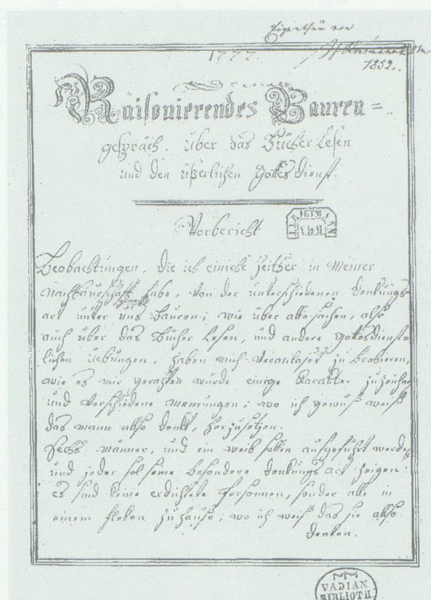 Eigenthum von
1852.
1777.
Räisonierendes Bauren=
gespräch. über das Bücher Lesen
und den üßerlichen Gottes dienst.
Vorbericht
Beobachtungen, die ich einiche Zeither in Meiner
Nachbaurschafft habe, von der unterschiedenen denkungs=
art unter uns Bauren; wie über alle sachen, also
auch über das Bücher Lesen, und andere gottesdienst=
lichen uebungen, haben mich Veranlaset zu Probieren,
wie es mir gerathen würde einige Karakter zu zeichnen
und Verschiedene meinungen; wo ich gewüß weiß
das mann also denkt, herzusetzen.
Sechs männer, und ein weib sollen aufgeführt werden
und jeder sol seine besondere denkungs art zeigen:
es sind keine erdichtete Personnen, sonder alle in
einem fleken zu hause; wo ich weiß das sie also
denken.
VADIAN
BIBLIOTH